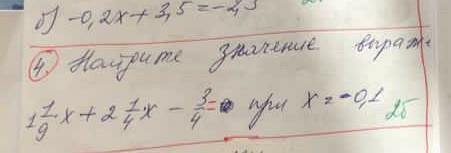 б) -0,2x + 3,5 = -2,3
4. Найдите значение выраж.
1 1/9 x + 2 1/4 x - 3/4 = при x = -0,1 2б